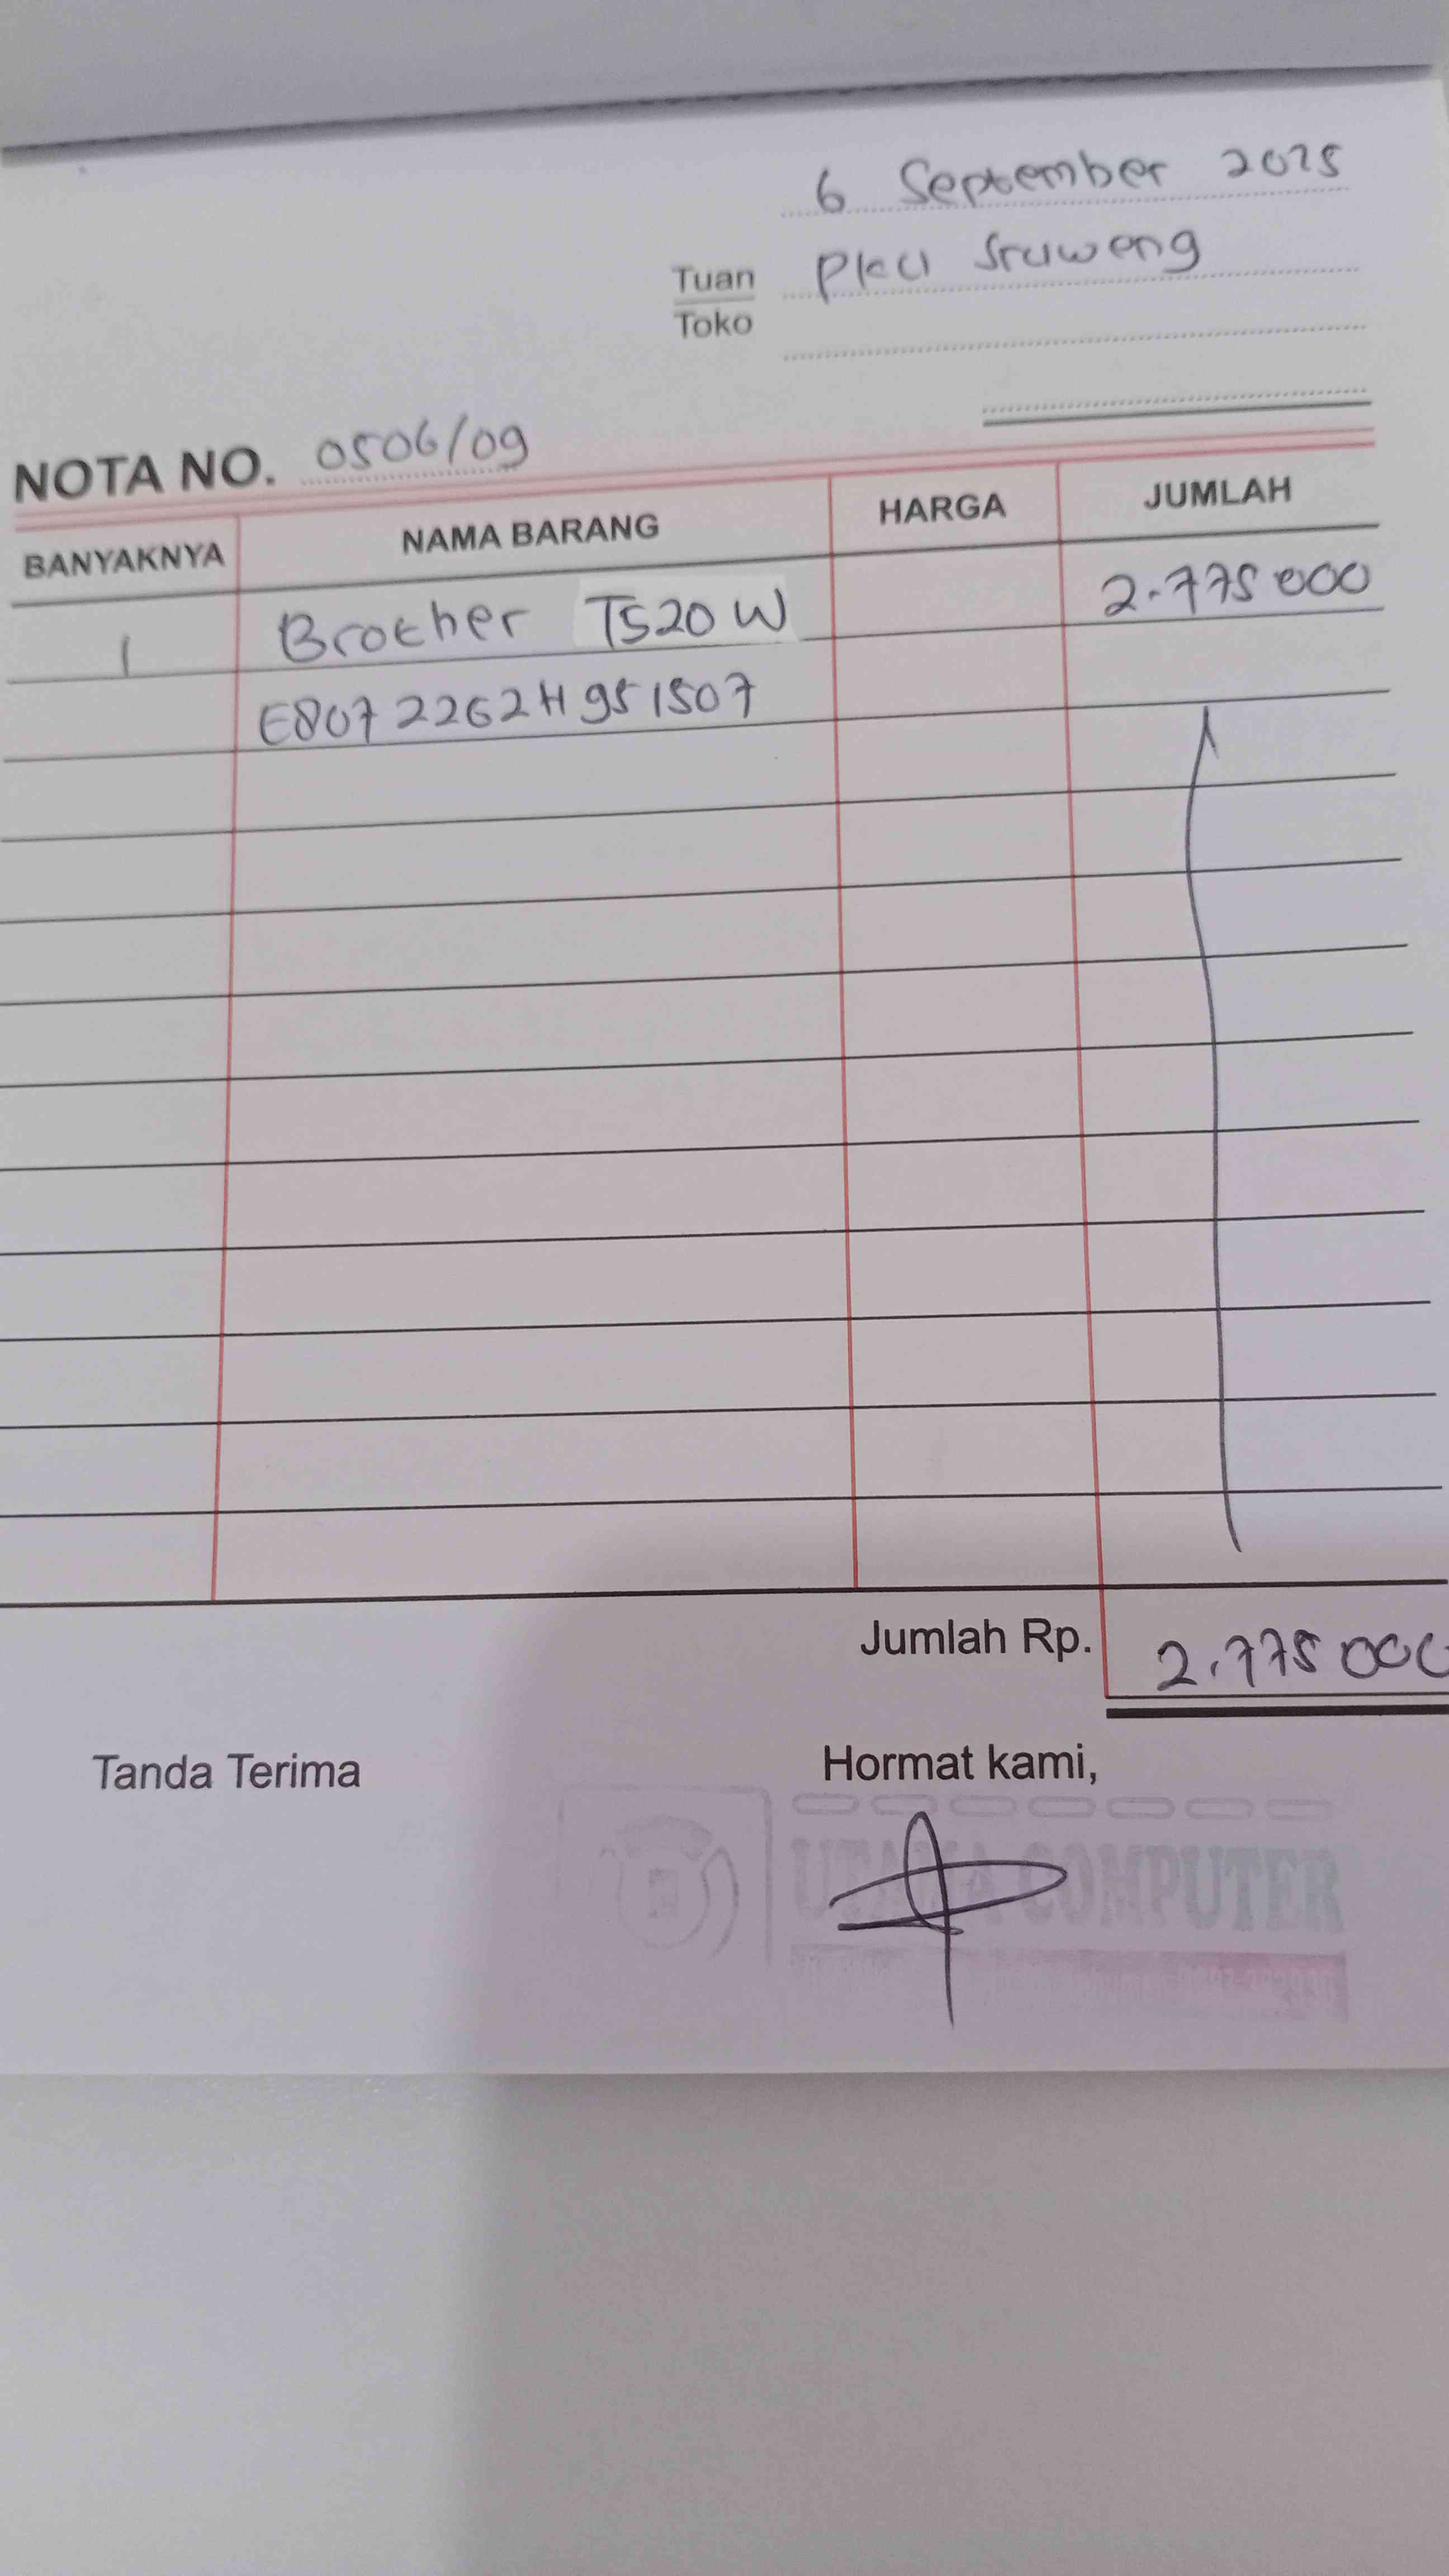 6 September 2025
Tuan PKU Sruweng
Toko
NOTA NO. 0506/09
BANYAKNYA NAMA BARANG HARGA JUMLAH
1 Brother T520W 2.775 000
E8072262H951507
Jumlah Rp. 2.775 000
Tanda Terima Hormat kami,
UTAMA COMPUTER